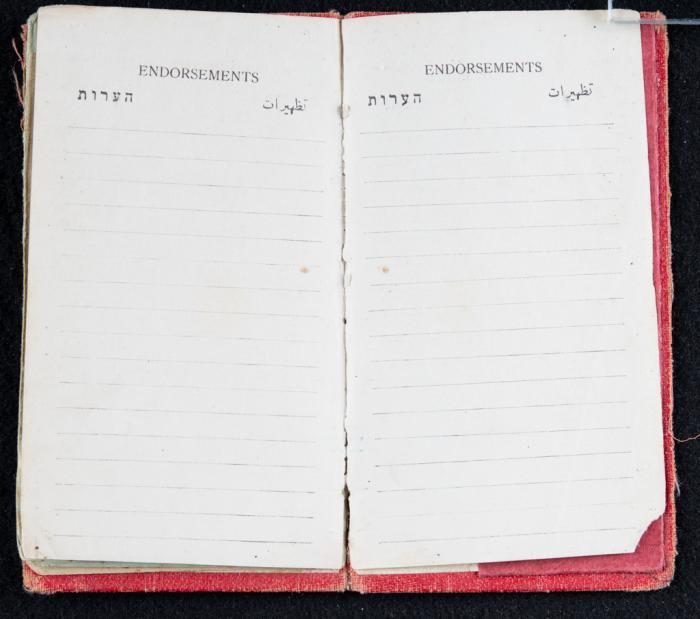 ENDORSEMENTS
הערות
تظهيرات
ENDORSEMENTS
הערות
تظهيرات